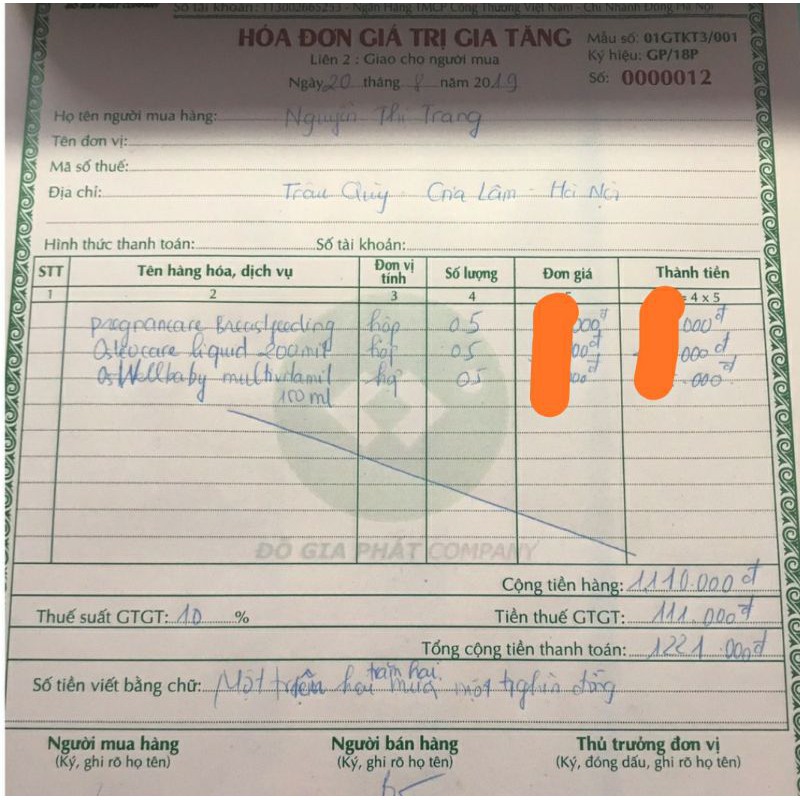 Số tài khoản: 113002665233 - Ngân Hàng TMCP Công Thương Việt Nam - Chi Nhánh Đông Hà Nội
HÓA ĐƠN GIÁ TRỊ GIA TĂNG
Mẫu số: 01GTKT3/001
Liên 2 : Giao cho người mua
Ký hiệu: GP/18P
Ngày 20 tháng 8 năm 2019
Số: 0000012
Họ tên người mua hàng: Nguyễn Thị Trang
Tên đơn vị:
Mã số thuế:
Địa chỉ: Trâu Quỳ - Gia Lâm - Hà Nội
Hình thức thanh toán: Số tài khoản:
STT Tên hàng hóa, dịch vụ Đơn vị tính Số lượng Đơn giá Thành tiền
1 2 3 4 = 4 x 5
pregnancare Breastfeeding hộp 05 000đ 000đ
Osteocare liquid 200ml hộp 05 00đ 000đ
Wellbaby multivitamil hộp 05 00đ .000đ
150ml
ĐỖ GIA PHÁT COMPANY
Cộng tiền hàng: 1.110.000đ
Thuế suất GTGT: 10 % Tiền thuế GTGT: 111.000đ
Tổng cộng tiền thanh toán: 1221.000đ
Số tiền viết bằng chữ: Một triệu hai trăm hai mươi một nghìn đồng
Người mua hàng Người bán hàng Thủ trưởng đơn vị
(Ký, ghi rõ họ tên) (Ký, ghi rõ họ tên) (Ký, đóng dấu, ghi rõ họ tên)